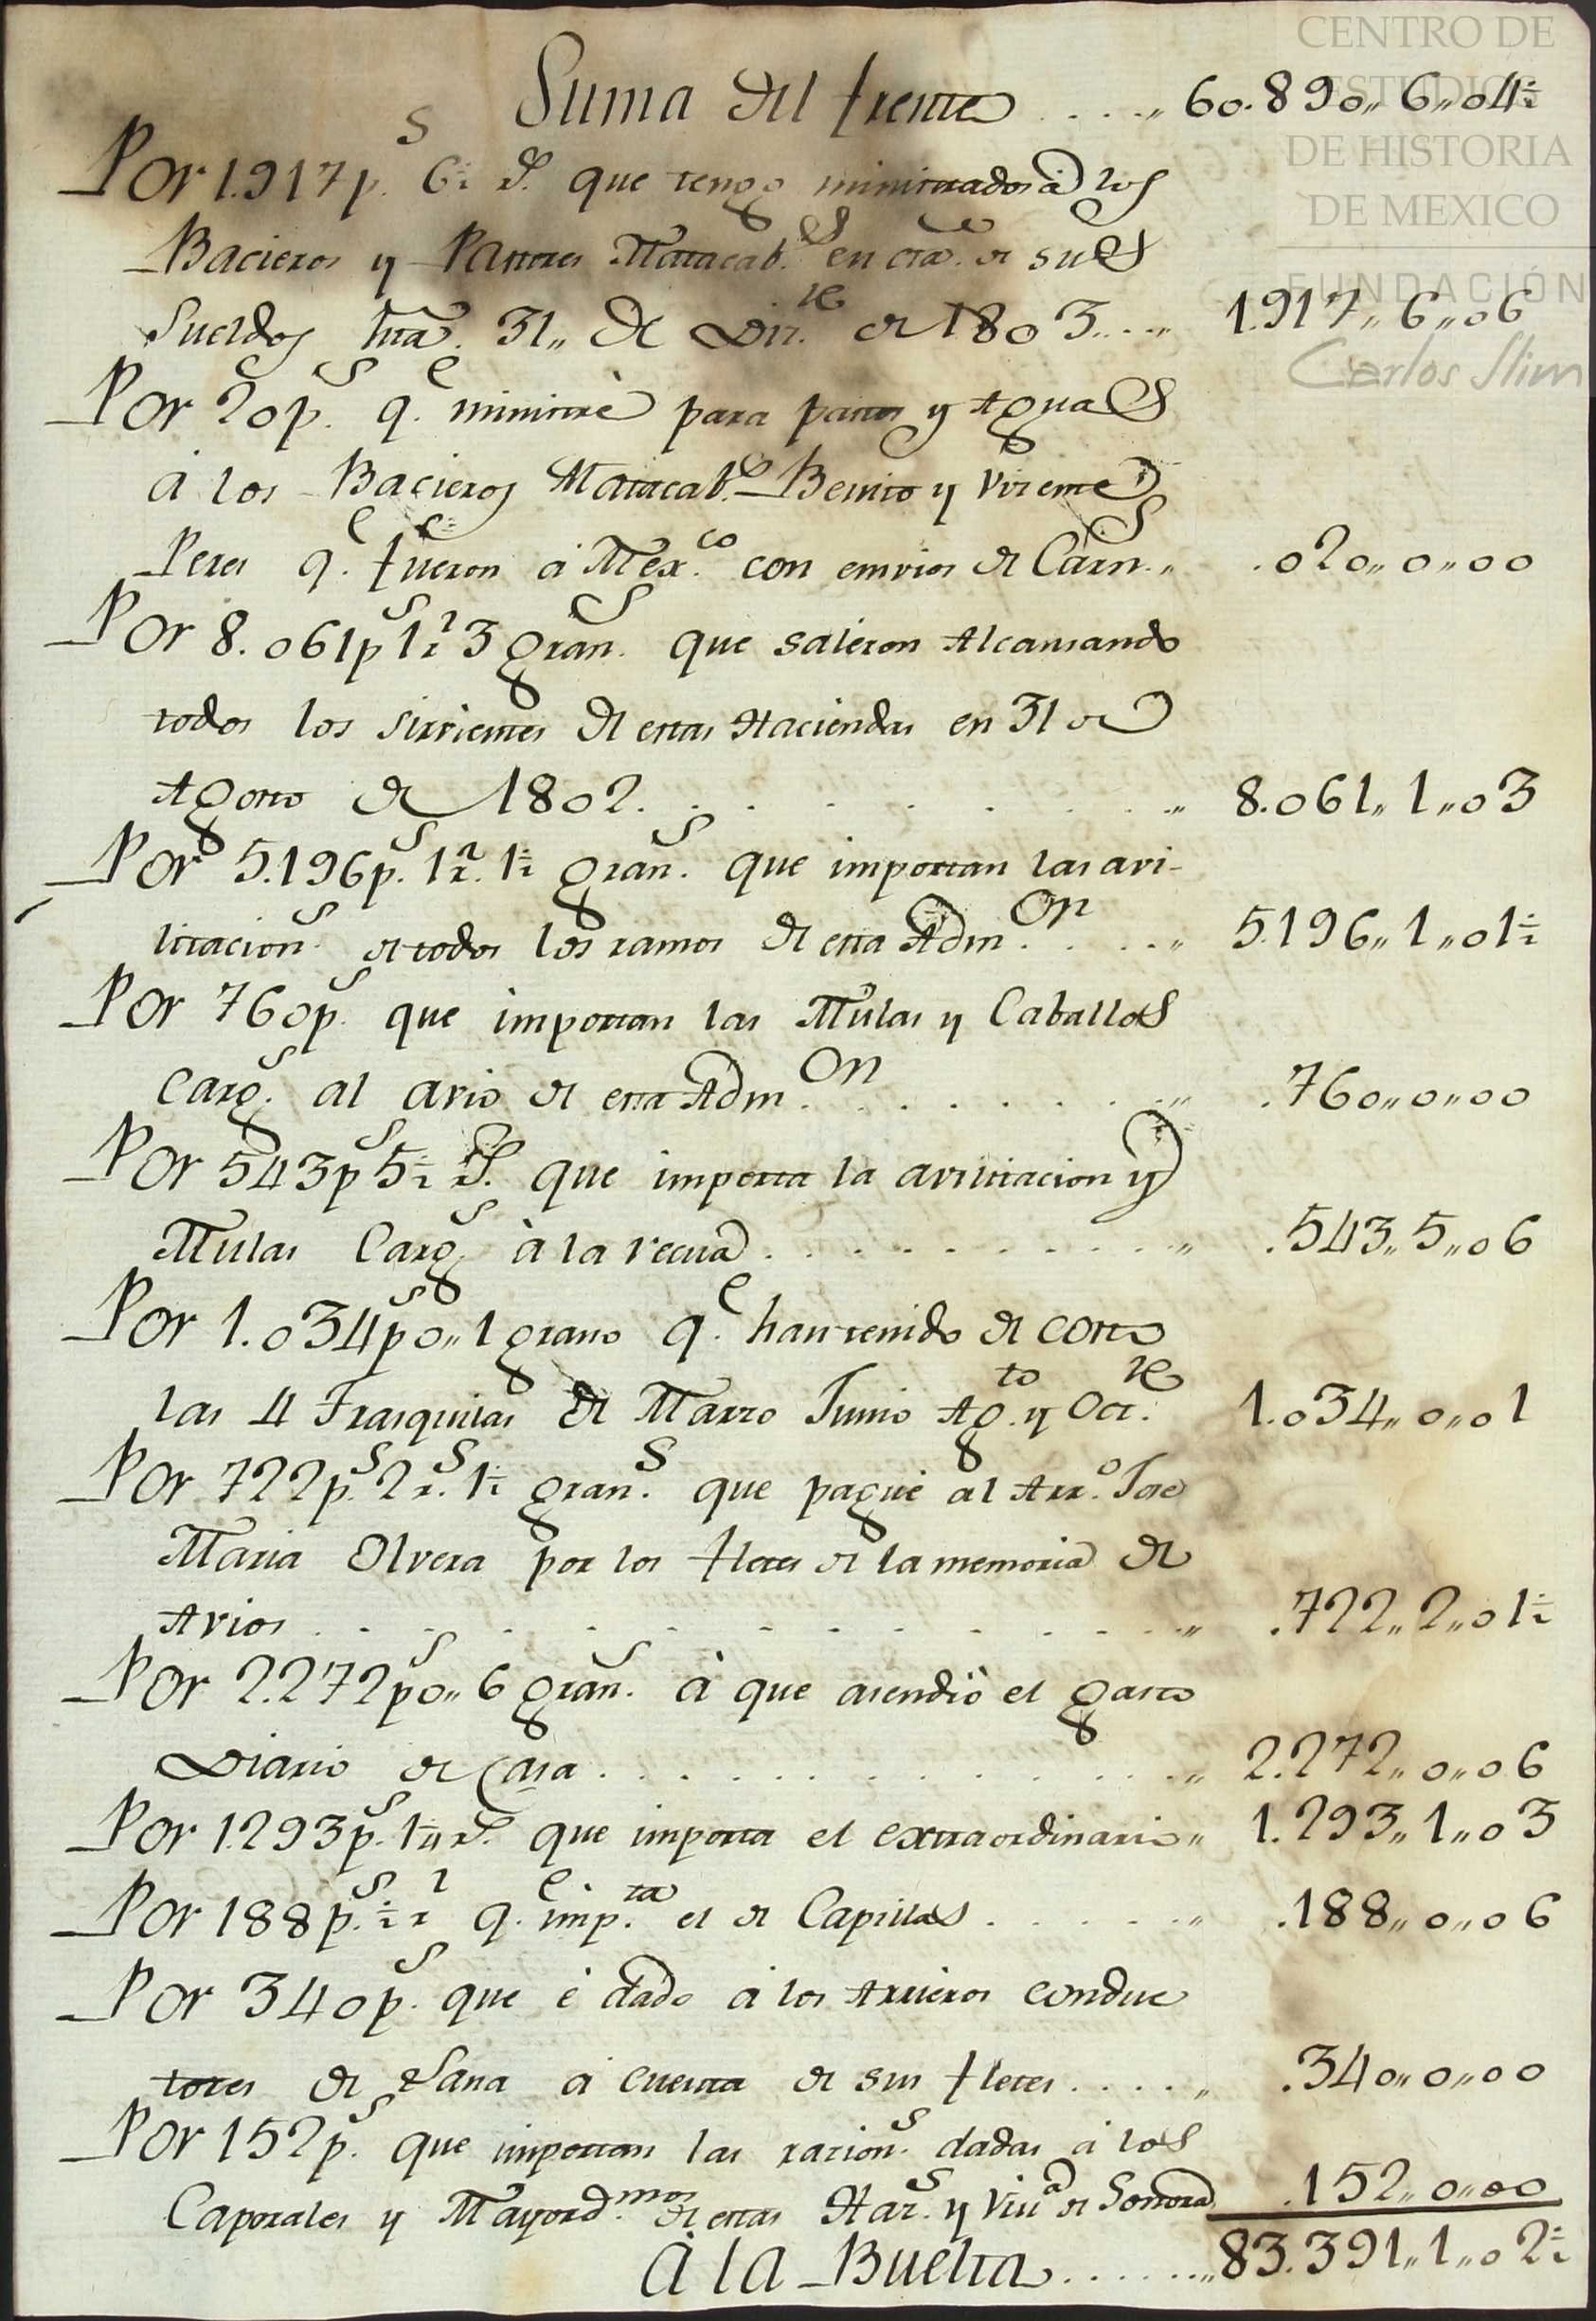 Suma del frente . . . . „ 60.890„ 6„ 04½
Por 1.917p.s 6½ r.s que tengo ministrados à los
Bacieros y Pastores Matacab.s en cta. de sus
Sueldos hta. 31„ de Diz.re de 1803 . . . „ 1.917„ 6„ 06
Por 20p.s q.e ministrè para pastos y Aguas
à los Bacieros Matacab.s Benito y Vizente
Peres q.e fueron à Mex.co con envios de Carn.s „ .020„ 0„ 00
Por 8.061p.s 1 r.l 3 gran.s que salieron Alcansando
todos los sirvientes de estas Haciendas en 31 de
Agosto de 1802. . . . . . . . „ 8.061„ 1„ 03
Por 5.196p.s 1 r.l 1½ gran.s que importan las avi-
litacion.s de todos los ramos de esta Adm.on . . . „ 5.196„ 1„ 01½
Por 760p.s que importan las Mulas y Caballos
Carg.s al avio de esta Adm.on . . . . . . . „ .760„ 0„ 00
Por 543p.s 5½ r.s que importa la avilitacion y
Mulas Carg.s à la recua . . . . . . . . . „ .543„ 5„ 06
Por 1.034p.s 0„ 1 grano q.e han tenido de costo
las 4 Trasquilas de Marzo Junio Ag.to y Oct.re 1.034„ 0„ 01
Por 722p.s 2 r.s 1½ gran.s que paguè al Arr.o Jose
Maria Olvera por los fletes de la memoria de
Avios . . . . . . . . . . . „ .722„ 2„ 01½
Por 2.272p.s 0„ 6 gran.s à que asendiò el gasto
Diario de Casa . . . . . . . . . „ 2.272„ 0„ 06
Por 1.293p.s 1¼ r.s que importa el extraordinario „ 1.293„ 1„ 03
Por 188p.s ½ r.l q.e imp.ta el de Capillas . . . . . „ .188„ 0„ 06
Por 340p.s que è dado à los Arrieros conduc
tores de Lana à cuenta de sus fletes . . . . „ .340„ 0„ 00
Por 152p.s que importan las razion.s dadas à los
Caporales y Mayord.mos de estas Haz.s y Viu.a de Sonora .152„ 0„ 00
À la Buelta . . . . . . „ 83.391„ 1„ 02½
CENTRO DE
ESTUDIOS
DE HISTORIA
DE MEXICO
FUNDACIÓN
Carlos Slim